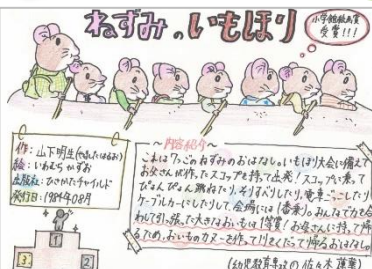 ねずみのいもほり
小学館絵画賞
受賞!!!
作：山下明生(やましたはるお)
絵：いわむらかずお
出版社：ひさかたチャイルド
発行日：1984年08月
～内容紹介～
これは7ひきのねずみのおはなし。いもほり大会に備えて
お父さんが作ったスコップを持って出発！スコップに乗って
ぴょんぴょん跳ねたり、そりすべりしたり、電車ごっこしたり
ケーブルカーにしたりして、会場には1番乗り。みんなで力を合
わせて引っ張った大きなおいもは1等賞！お母さんに持って帰
るため、おいものカヌーを作って川をくだって帰るおはなし。
(幼児教育専攻の 佐々木
1
2
3